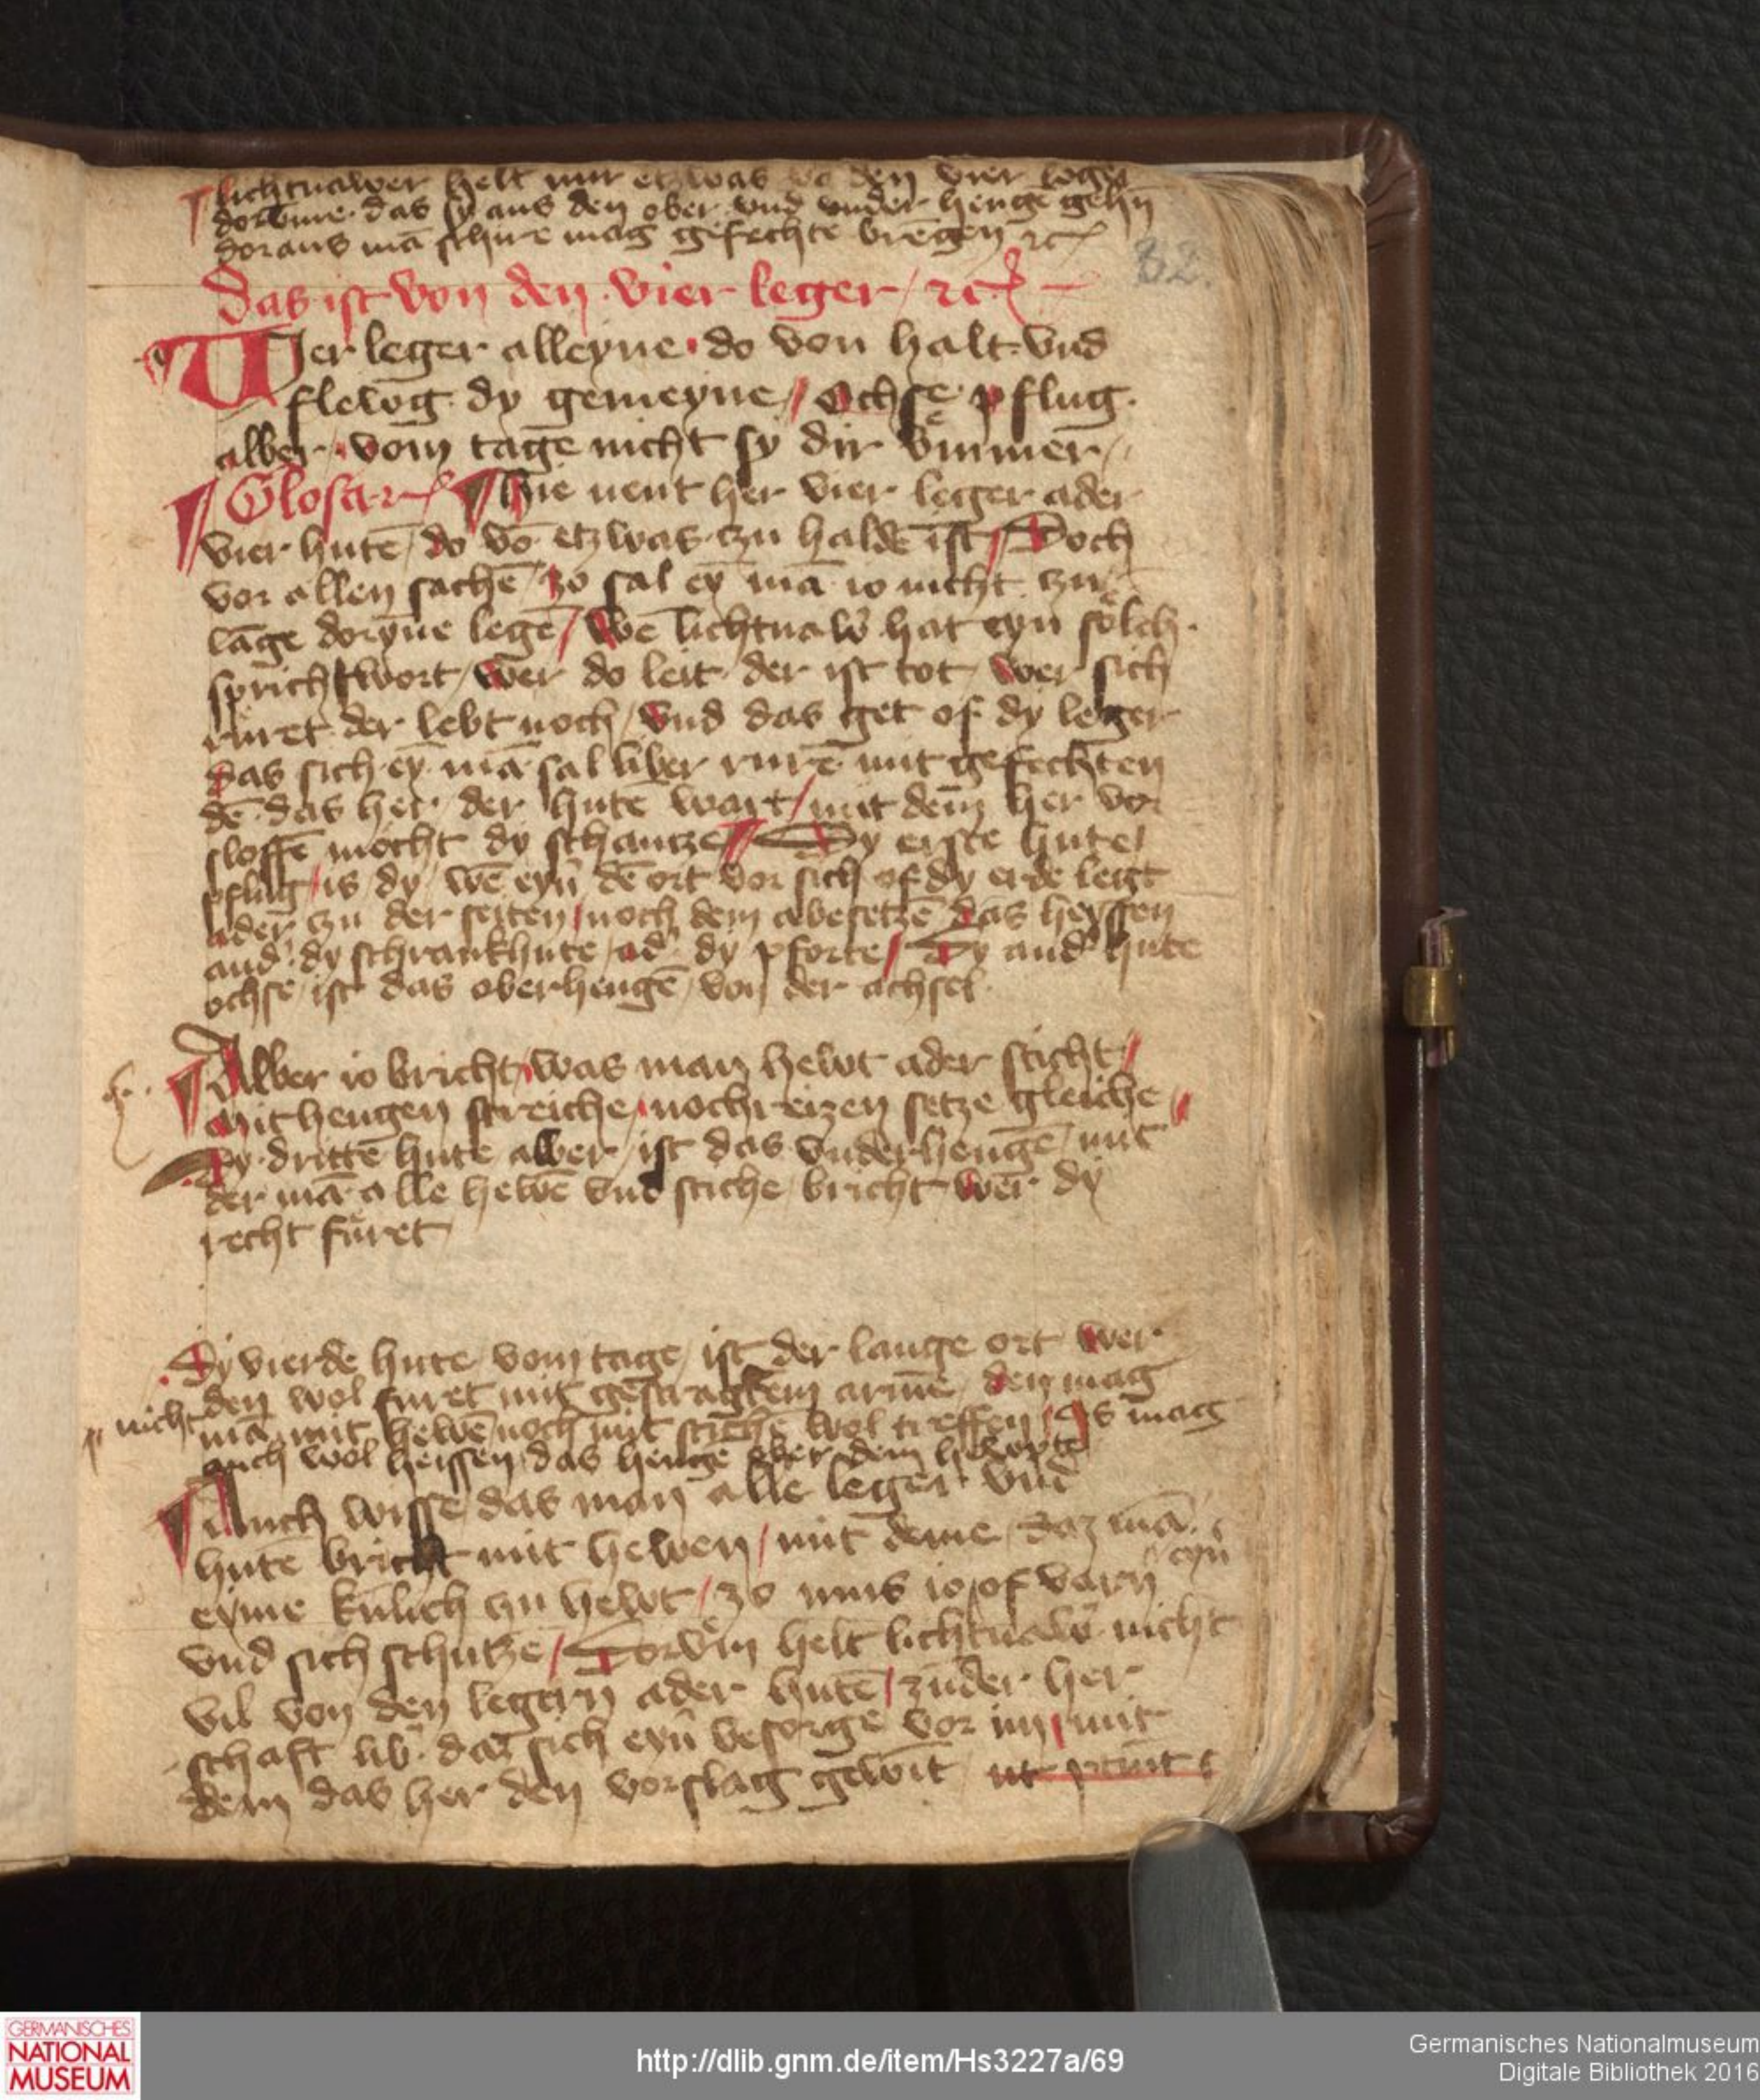 lichtnawer helt nur etzwas vō den vier leger
dorvͤme das sy aus den ober vnd vnder henge gehn̄
doraus mā schire mag gefechte brēgen ꝛcꝭ
82.
Das ist von den vier leger / ꝛcꝭ
VIer leger alleyne · do von halt · vnd
flewg dy gemeyne / Ochse pflug ·
alber / vom tage nicht sy dir vm̄mer /
Glosa ꝛꝭ Hie nent her vier leger ader
vier hutē / do vō etzwas czu haldē ist / Doch
vor allen sachē / zo sal eȳ mā io nicht czu
lāge doryn̄e legē / Wē lichtnaw̄ hat eyn sölch ·
sprichwort / wer do leit der ist tot / wer sich
rüret der lebt noch / Vnd das get of dy leger
das sich eȳ mā sal liber rurē mit gefechten
dē das her der hutē wart / mit dem her vor
sloffē mocht dy schantze Dy erste hute /
pflug / is dy / wē eyn̄ dē ort vor sich of dy erde legt
ader czu der seiten / noch dem abesetzē das heyssen
and' dy schrankhute / ad' dy pforte / Dy and' hute
ochse / ist das oberhengē / von der achsel
Alber io bricht / was man hewt ader sticht /
Mit hengen streiche / nochreizen setze gleiche
Dy dritte hute alber / ist das vnderhengē / mit
der mā alle hewē vnd stiche / bricht wer dy
recht füret
Dy vierde hute / vom tage / ist der lange ort wer
den wol furet mit gestragtem arme / den mag
nicht
mā mit hewē noch mit stichē wol treffen / Is mag
auch wol heissen das hengē ober dem hewpte
Auch wisse das man alle leger vnd
hutē bricht mit hewen / mit deme daz mā
eyn
eyme künlich czu hewt / zo mus io of varn
vnd sich schutzē / Dorvͤm helt lichtnaw̄ nicht
vil von den legern ader hutē / zūder her
schaft lib' daz sich eyn̄ besorge vor im / mit
dem das her den vorslag gewīt
GERMANISCHES
NATIONAL
MUSEUM
http://dlib.gnm.de/item/Hs3227a/69
Germanisches Nationalmuseum
Digitale Bibliothek 2016